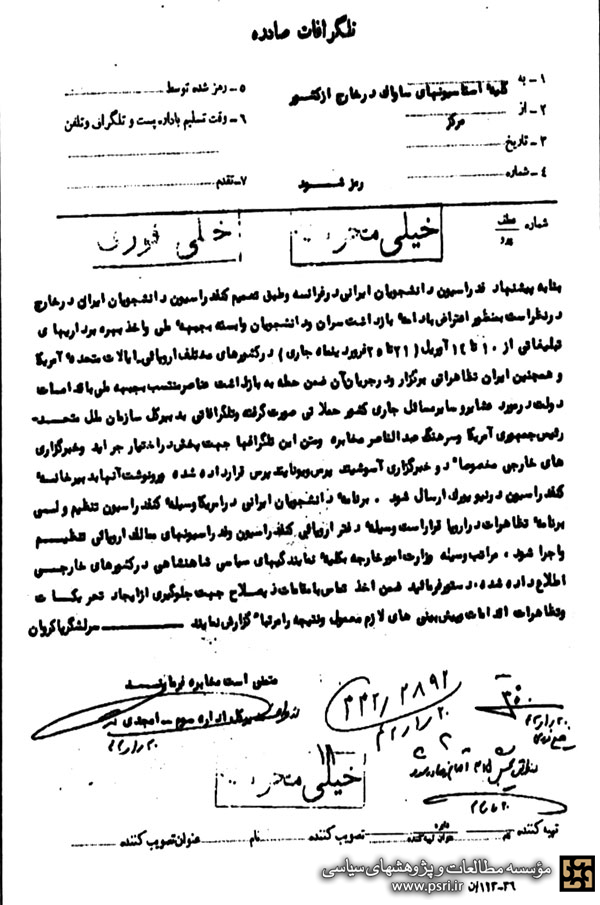 تلگرافات صادره
۱ـ به کلیه استاسیونهای ساواک در خارج از کشور
۵ـ رمز شده توسط
۲ـ از مرکز
۶ـ وقت تسلیم باداره پست و تلگراف و تلفن
۳ـ تاریخ
۴ـ شماره رمز شود
۷ـ تقدم
شماره عطف پیرو
خیلی محرمانه
خیلی فوری
بنا به پیشنهاد فدراسیون دانشجویان ایرانی در فرانسه و طبق تصمیم کنفدراسیون دانشجویان ایرانی در خارج
در نظر است بمنظور اعتراض بادامه بازداشت سران و دانشجویان وابسته بجبهه ملی واخذ بهره برداریهای
تبلیغاتی از ۱۰ تا ۱۴ آوریل (۲۱ تا ۲۵ فروردینماه جاری) در کشورهای مختلف اروپائی ـ ایالات متحده آمریکا
و همچنین ایران تظاهراتی برگزار و در جریان آن ضمن حمله به بازداشت عناصر منتسب بجبهه ملی باقدامات
دولت در مورد عشایر و سایر مسائل جاری کشور حملاتی صورت گرفته و تلگرافاتی به دبیر کل سازمان ملل متحد ـ
رئیس جمهوری آمریکا و سرهنگ عبدالناصر مخابره و متن این تلگرافها جهت پخش در اختیار جراید و خبرگزاری
های خارجی مخصوصاً دو خبرگزاری آسوشیتد پرس و یونایتد پرس قرار داده شده و رونوشت آنها به دبیرخانه
کنفدراسیون در نیویورک ارسال شود . برنامه دانشجویان ایرانی در امریکا وسیله کنفدراسیون تنظیم و لسی
برنامه تظاهرات در اروپا قرار است وسیله دفتر اروپائی کنفدراسیون و فدراسیونهای ممالک اروپائی تنظیم
و اجرا شود . مراتب وسیله وزارت امور خارجه بکلیه نمایندگیهای سیاسی شاهنشاهی در کشورهای خارجی
اطلاع داده شده ، دستور فرمائید ضمن اخذ تماس با مقامات ذیصلاح جهت جلوگیری از ایجاد تحریکات
و تظاهرات اقدامات و پیش بینی های لازم معمول و نتیجه را مرتباً گزارش نمایند سرلشگر پاکروان
متمنی است مخابره فرمایند
مدیرکل اداره سوم ـ امجدی
۳۳۲/۲۸۹۲
۳۵۰
خیلی محرمانه
تهیه کننده نام عنوان تهیه کننده تصویب کننده نام عنوان تصویب کننده
مؤسسه مطالعات و پژوهشهای سیاسی
www.psri.ir
۱۱۳-۳۶/ن